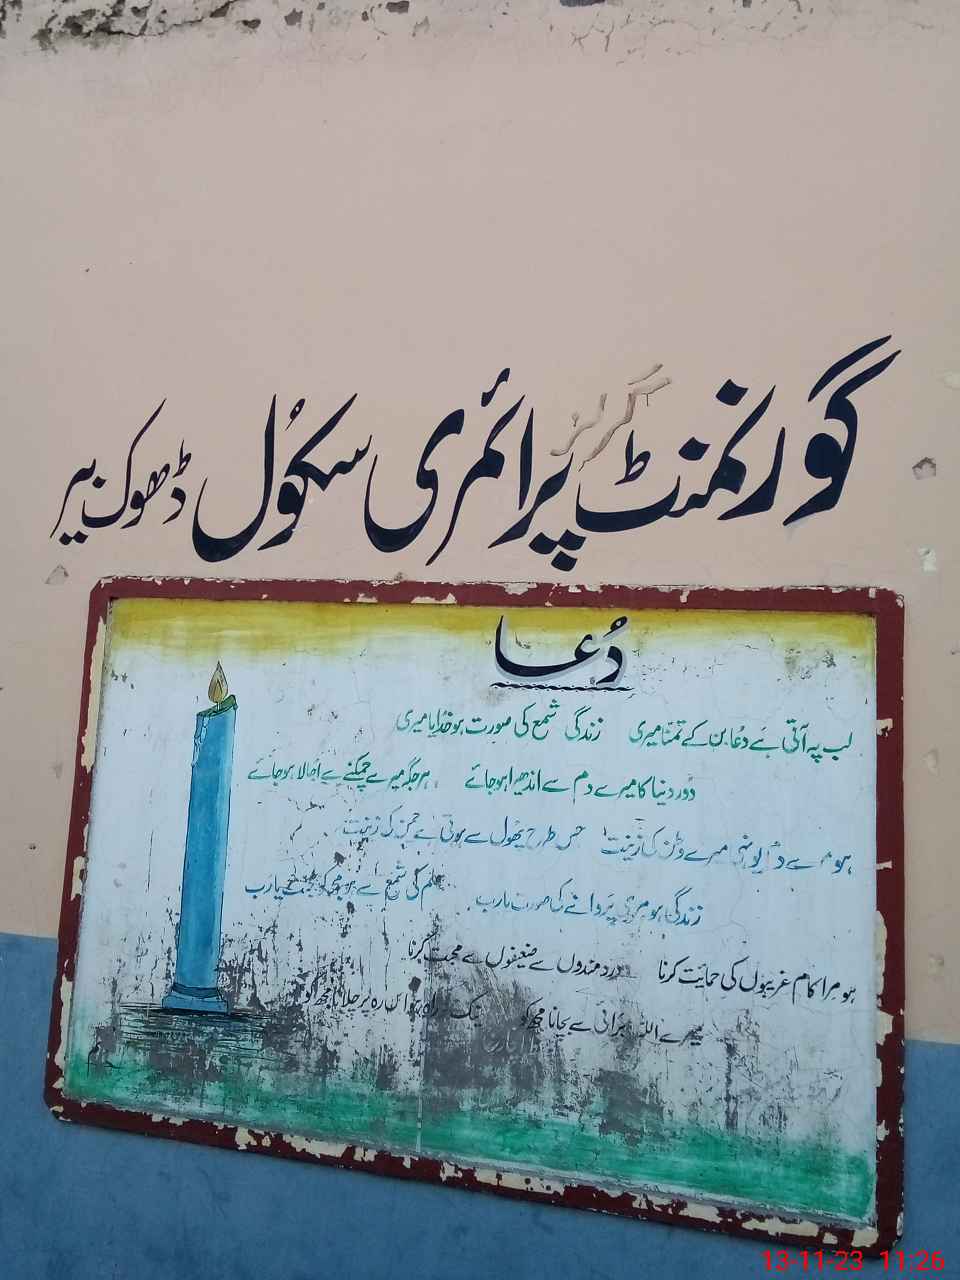 گورنمنٹ گرلز پرائمری سکُول ڈھوک بیر
دُعا
لب پہ آتی ہے دُعا بن کے تمنّا میری زندگی شمع کی صورت ہو خدایا میری
دُور دنیا کا میرے دم سے اندھیرا ہو جائے ہر جگہ میرے چمکنے سے اُجالا ہو جائے
ہو میرے دم یونہی میرے وطن کی زینت جس طرح پھُول سے ہوتی ہے چمن کی زینت
زندگی ہو مری پروانے کی صورت یارب علم کی شمع سے ہو مجھ کو محبت یارب
ہو مرا کام غریبوں کی حمایت کرنا دردمندوں سے ضعیفوں سے محبت کرنا
میرے اللہ برائی سے بچانا مجھ کو نیک راہ ہو اس رہ پر چلانا مجھ کو
13-11-23 11:26